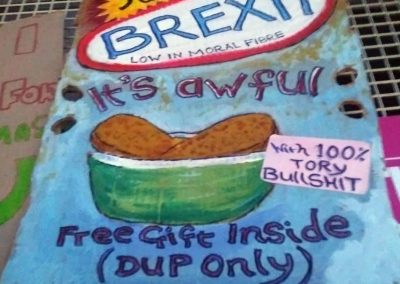 BREXIT
LOW IN MORAL FIBRE
It's awful
With 100%
TORY
BULLSHIT
Free Gift Inside
(DUP Only)
FOR